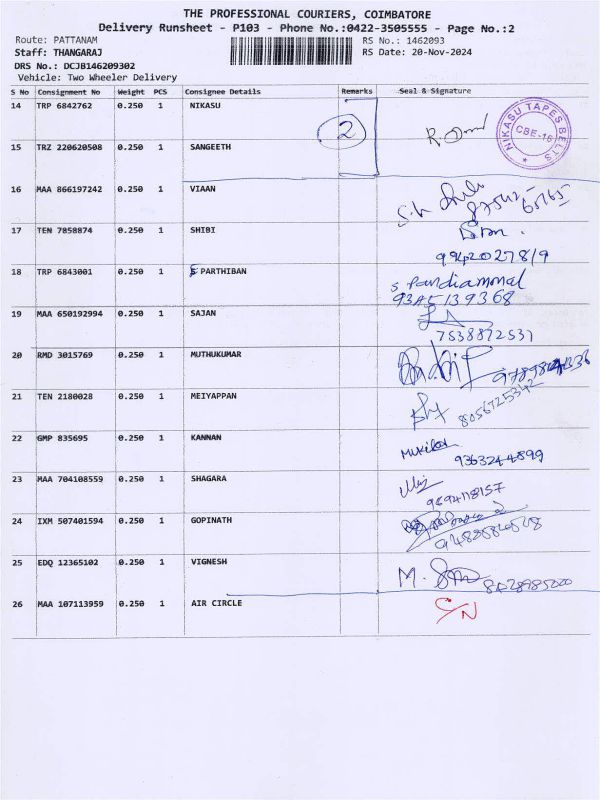 THE PROFESSIONAL COURIERS, COIMBATORE
Delivery Runsheet - P103 - Phone No.:0422-3505555 - Page No.:2
Route: PATTANAM RS No.: 1462093
Staff: THANGARAJ RS Date: 20-Nov-2024
DRS No.: DCJB146209302
Vehicle: Two Wheeler Delivery
S No Consignment No Weight PCS Consignee Details Remarks Seal & Signature
14 TRP 6842762 0.250 1 NIKASU
2
NIKASU TAPES BELTS
CBE-16
15 TRZ 220620508 0.250 1 SANGEETH
16 MAA 866197242 0.250 1 VIAAN
17 TEN 7858874 0.250 1 SHIBI
9942027819
18 TRP 6843001 0.250 1 S PARTHIBAN
S Pandiammal
19 MAA 650192994 0.250 1 SAJAN
7538872531
20 RMD 3015769 0.250 1 MUTHUKUMAR
21 TEN 2180028 0.250 1 MEIYAPPAN
8056725342
22 GMP 835695 0.250 1 KANNAN
9363244899
23 MAA 704108559 0.250 1 SHAGARA
24 IXM 507401594 0.250 1 GOPINATH
25 EDQ 12365102 0.250 1 VIGNESH
26 MAA 107113959 0.250 1 AIR CIRCLE
C/N